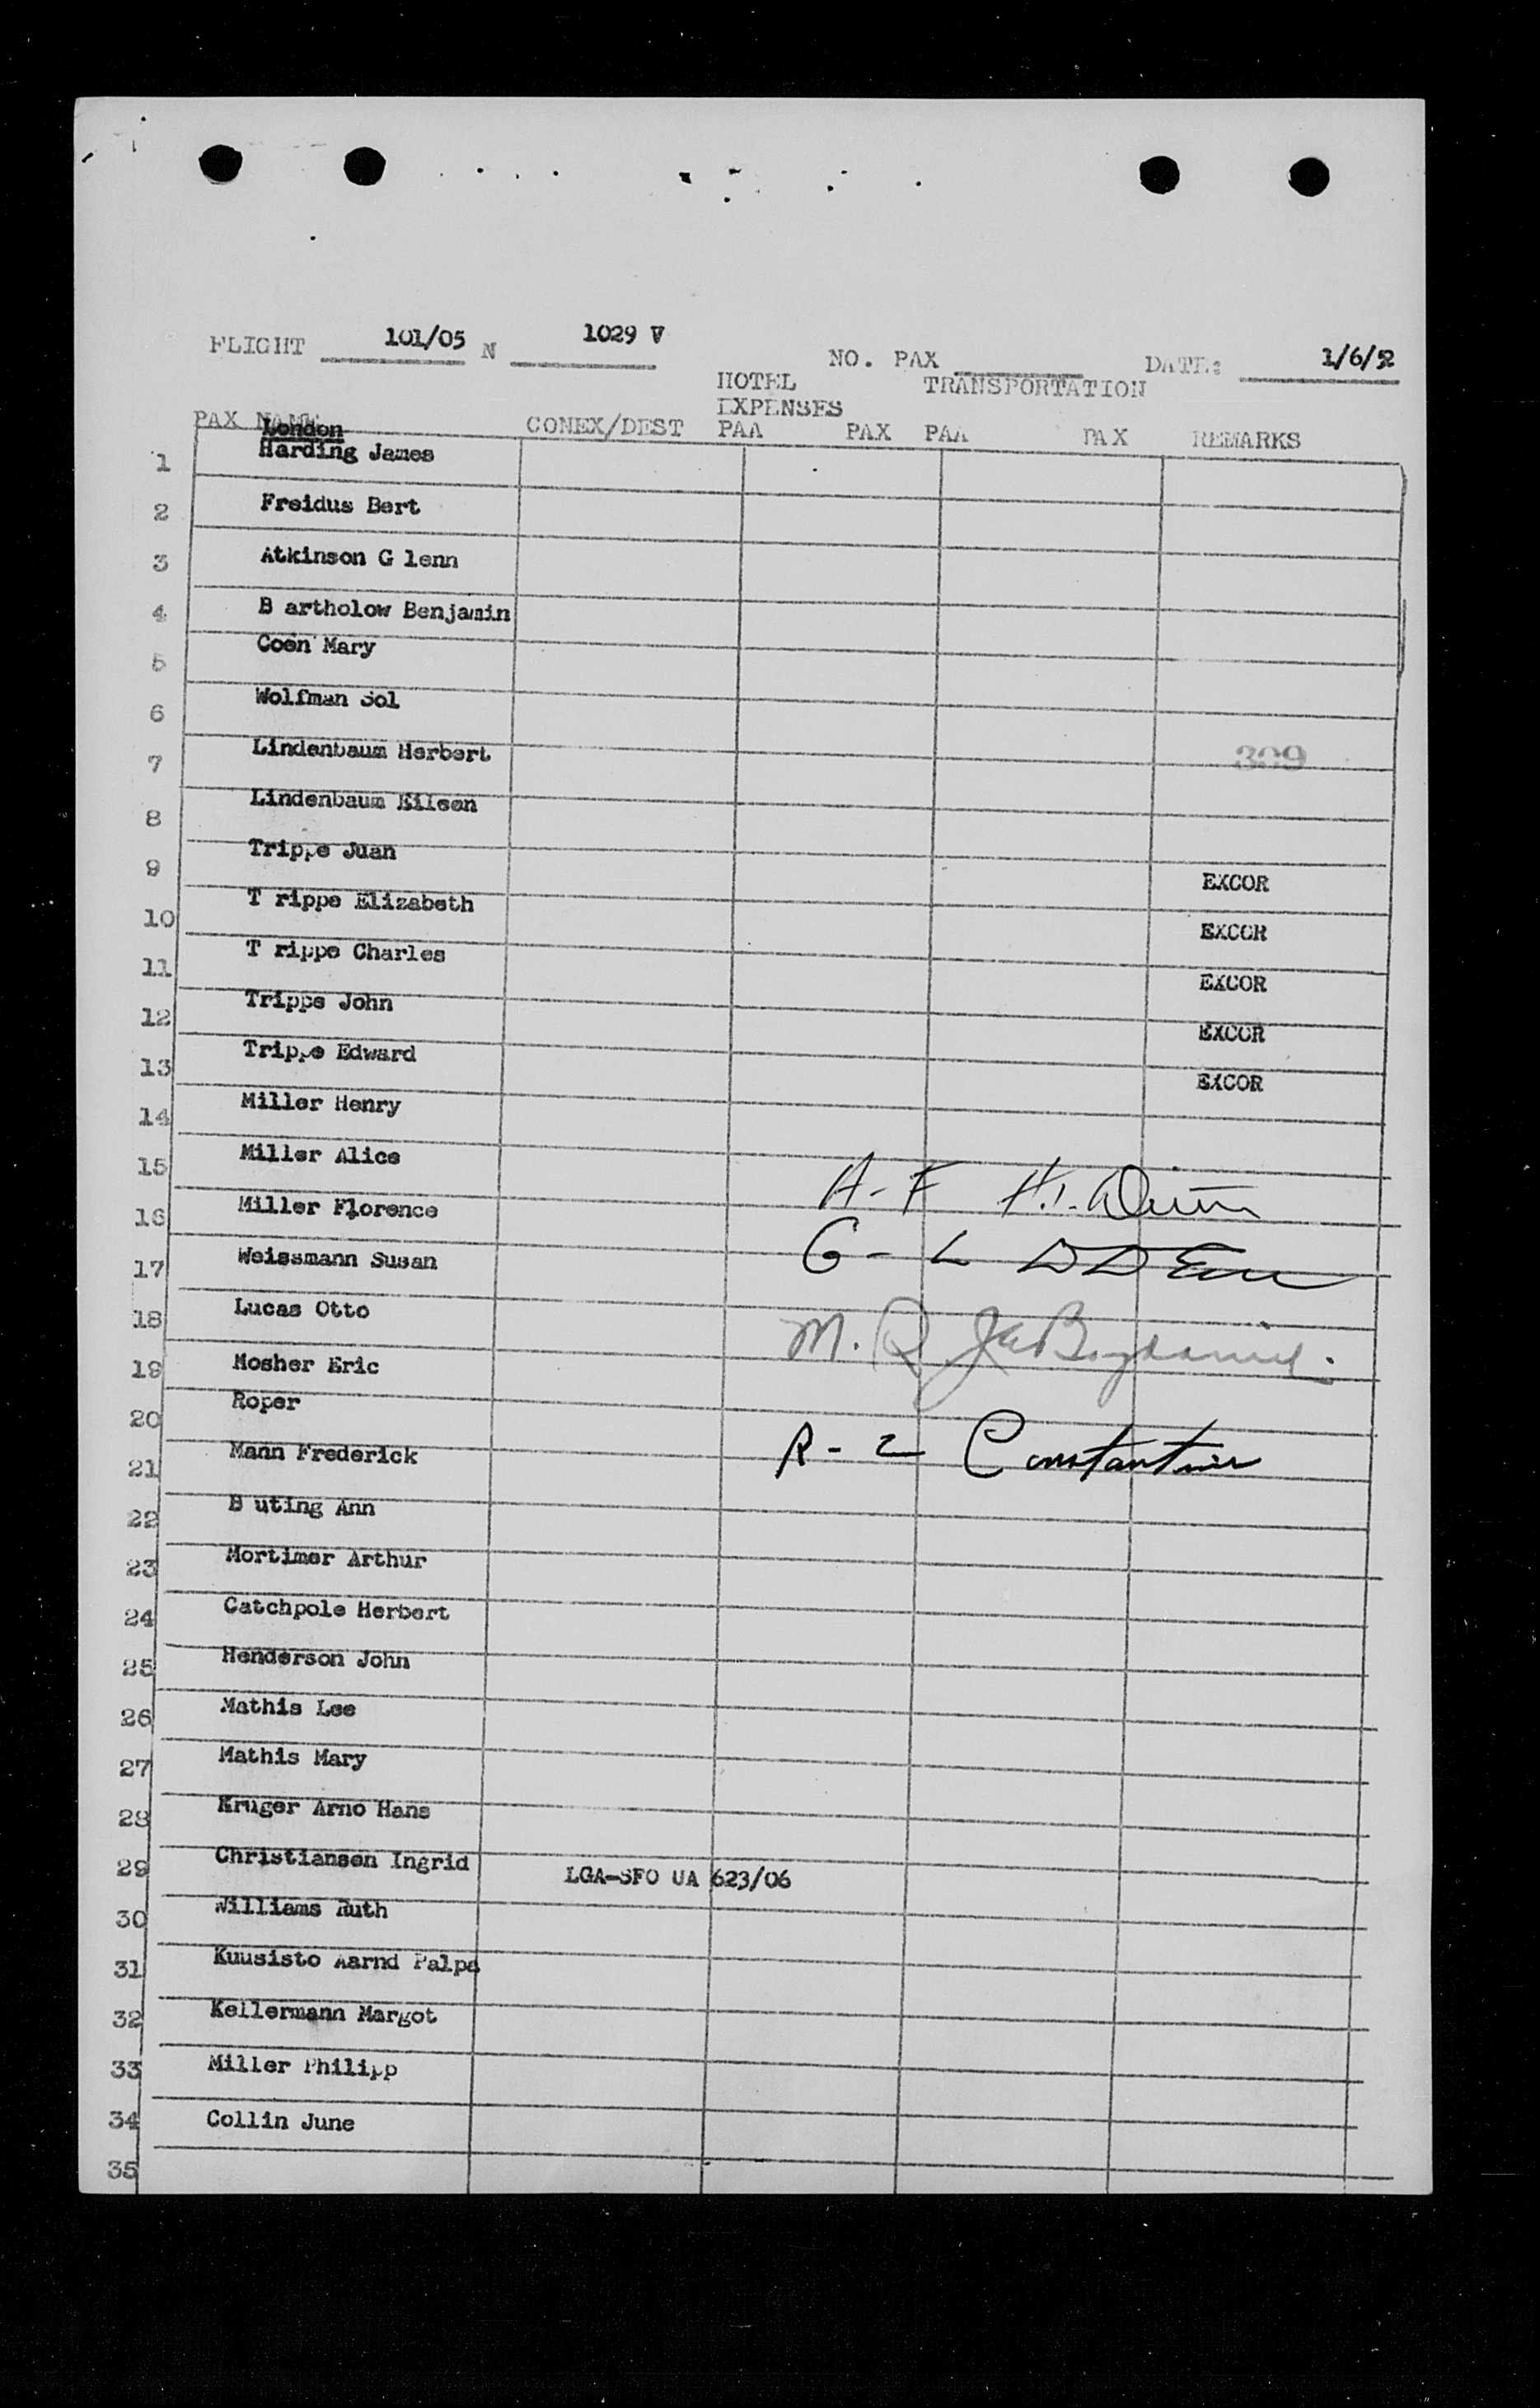 FLIGHT 101/05 N 1029 V NO. PAX DATE: 1/6/52
HOTEL TRANSPORTATION
EXPENSES
PAX NAME CONEX/DEST PAA PAX PAA PAX REMARKS
London
1 Harding James
2 Freidus Bert
3 Atkinson G lenn
4 B artholow Benjamin
5 Coen Mary
6 Wolfman Sol
7 Lindenbaum Herbert 309
8 Lindenbaum Eileen
9 Trippe Juan EXCOR
10 T rippe Elizabeth EXCOR
11 T rippe Charles EXCOR
12 Trippe John EXCOR
13 Trippe Edward EXCOR
14 Miller Henry
15 Miller Alice A-F
16 Miller Florence
17 Weissmann Susan G-L
18 Lucas Otto
19 Mosher Eric M.
20 Roper
21 Mann Frederick R-Z Constantine
22 B uting Ann
23 Mortimer Arthur
24 Catchpole Herbert
25 Henderson John
26 Mathis Lee
27 Mathis Mary
28 Kruger Arno Hans
29 Christiansen Ingrid LGA-SFO UA 623/06
30 Williams Ruth
31 Kuusisto Aarnd Palpa
32 Kellermann Margot
33 Miller Philipp
34 Collin June
35